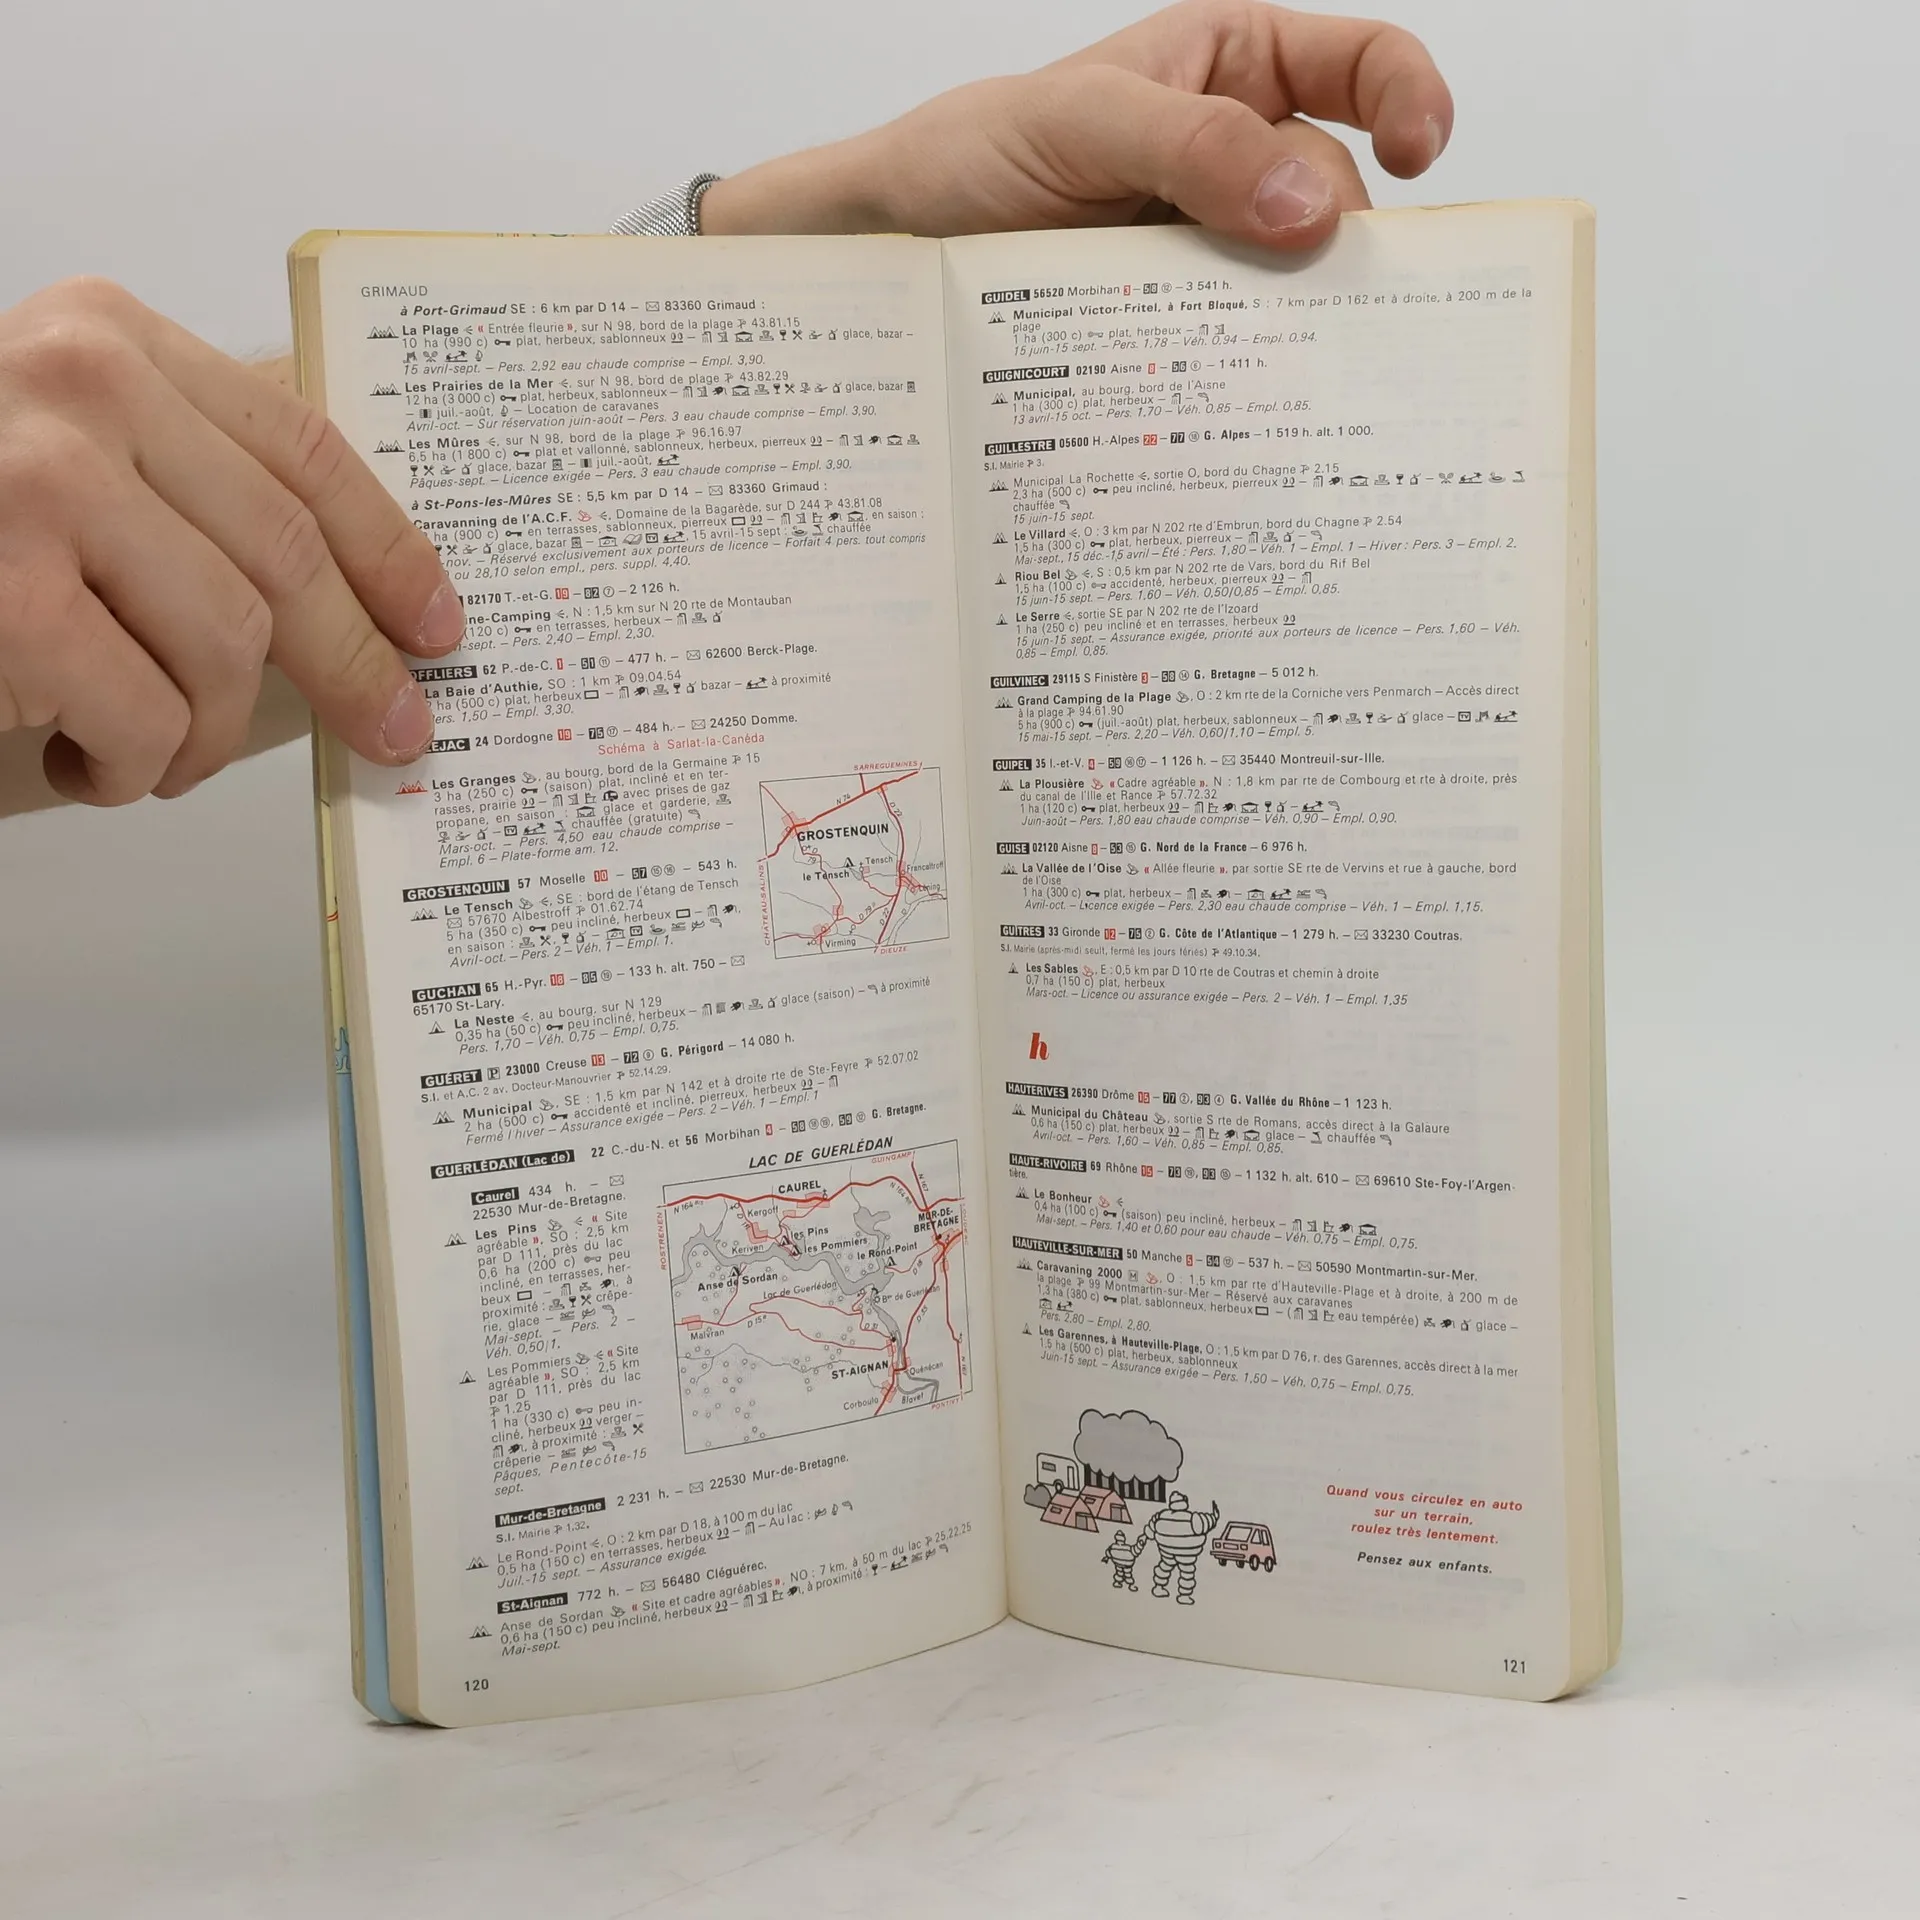 GRIMAUD
à Port-Grimaud SE : 6 km par D 14 – 83360 Grimaud :
La Plage « Entrée fleurie », sur N 98, bord de la plage 43.81.15
10 ha (990 c) plat, herbeux, sablonneux – glace, bazar –
15 avril-sept. – Pers. 2,92 eau chaude comprise – Empl. 3,90.
Les Prairies de la Mer , sur N 98, bord de plage 43.82.29
12 ha (3 000 c) plat, herbeux, sablonneux – glace, bazar
– juil.-août, – Location de caravanes
Avril-oct. – Sur réservation juin-août – Pers. 3 eau chaude comprise – Empl. 3,90.
Les Mûres , sur N 98, bord de la plage 96.16.97
6,5 ha (1 800 c) plat et vallonné, sablonneux, herbeux, pierreux –
glace, bazar – juil.-août,
Pâques-sept. – Licence exigée – Pers. 3 eau chaude comprise – Empl. 3,90.
à St-Pons-les-Mûres SE : 5,5 km par D 14 – 83360 Grimaud :
Caravanning de l'A.C.F. , Domaine de la Bagarède, sur D 244 43.81.08
ha (900 c) en terrasses, sablonneux, pierreux – , en saison :
glace, bazar – , 15 avril-15 sept : chauffée
-nov. – Réservé exclusivement aux porteurs de licence – Forfait 4 pers. tout compris
ou 28,10 selon empl., pers. suppl. 4,40.
82170 T.-et-G. 19 – 82 7 – 2 126 h.
ine-Camping , N : 1,5 km sur N 20 rte de Montauban
(120 c) en terrasses, herbeux –
-sept. – Pers. 2,40 – Empl. 2,30.
OFFLIERS 62 P.-de-C. 1 – 51 11 – 477 h. – 62600 Berck-Plage.
La Baie d'Authie, SO : 1 km 09.04.54
ha (500 c) plat, herbeux – bazar – à proximité
Pers. 1,50 – Empl. 3,30.
EJAC 24 Dordogne 19 – 75 17 – 484 h. – 24250 Domme.
Schéma à Sarlat-la-Canéda
Les Granges , au bourg, bord de la Germaine 15
3 ha (250 c) (saison) plat, incliné et en ter-
rasses, prairie – avec prises de gaz
propane, en saison : glace et garderie,
– chauffée (gratuite)
Mars-oct. – Pers. 4,50 eau chaude comprise –
Empl. 6 – Plate-forme am. 12.
SARREGUEMINES
N 74
D 22
GROSTENQUIN
D 79
le Tensch
Tensch
Francaltroff
Léning
CHÂTEAU-SALINS
D 22
Virming
DIEUZE
GROSTENQUIN 57 Moselle 10 – 57 15 16 – 543 h.
Le Tensch , SE : bord de l'étang de Tensch
57670 Albestroff 01.62.74
5 ha (350 c) peu incliné, herbeux –
en saison : –
Avril-oct. – Pers. 2 – Véh. 1 – Empl. 1.
GUCHAN 65 H.-Pyr. 18 – 85 19 – 133 h. alt. 750 –
65170 St-Lary.
La Neste , au bourg, sur N 129
0,35 ha (50 c) peu incliné, herbeux – glace (saison) – à proximité
Pers. 1,70 – Véh. 0,75 – Empl. 0,75.
GUÉRET P 23000 Creuse 13 – 72 9 G. Périgord – 14 080 h.
S.I. et A.C. 2 av. Docteur-Manouvrier 52.14.29.
Municipal , SE : 1,5 km par N 142 et à droite rte de Ste-Feyre 52.07.02
2 ha (500 c) accidenté et incliné, pierreux, herbeux –
Fermé l'hiver – Assurance exigée – Pers. 2 – Véh. 1 – Empl. 1
GUERLÉDAN (Lac de) 22 C.-du-N. et 56 Morbihan 4 – 58 , 59 12 G. Bretagne.
Caurel 434 h. –
22530 Mur-de-Bretagne.
Les Pins « Site
agréable », SO : 2,5 km
par D 111, près du lac
0,6 ha (200 c) peu
incliné, en terrasses, her-
beux – , à
proximité : crêpe-
rie, glace –
Mai-sept. – Pers. 2 –
Véh. 0,50/1.
Les Pommiers « Site
agréable », SO : 2,5 km
par D 111, près du lac
1.25
1 ha (330 c) peu in-
cliné, herbeux verger –
, à proximité :
crêperie –
Pâques, Pentecôte-15
sept.
LAC DE GUERLÉDAN
GUINGAMP
N 164 Bis
CAUREL
N 164 Bis
N 167
Kergoff
MÛR-DE-
BRETAGNE
ROSTRENEN
les Pins
Keriven
les Pommiers
le Rond-Point
Anse de Sordan
Lac de Guerlédan
Bge de Guerlédan
D 18
D 35
Malvran
D 15A
D 31
ST-AIGNAN
Quénécan
N 167
Corboulo
Blavet
PONTIVY
Mur-de-Bretagne 2 231 h. – 22530 Mur-de-Bretagne.
S.I. Mairie 1.32.
Le Rond-Point , O : 2 km par D 18, à 100 m du lac
0,5 ha (150 c) en terrasses, herbeux – – Au lac :
Juil.-15 sept. – Assurance exigée.
St-Aignan 772 h. – 56480 Cléguérec.
Anse de Sordan « Site et cadre agréables », NO : 7 km, à 50 m du lac 25.22.25
0,6 ha (150 c) peu incliné, herbeux – , à proximité : –
Mai-sept.
120
GUIDEL 56520 Morbihan 3 – 58 12 – 3 541 h.
Municipal Victor-Fritel, à Fort Bloqué, S : 7 km par D 162 et à droite, à 200 m de la
plage
1 ha (300 c) plat, herbeux –
15 juin-15 sept. – Pers. 1,78 – Véh. 0,94 – Empl. 0,94.
GUIGNICOURT 02190 Aisne 8 – 56 6 – 1 411 h.
Municipal, au bourg, bord de l'Aisne
1 ha (300 c) plat, herbeux – –
13 avril-15 oct. – Pers. 1,70 – Véh. 0,85 – Empl. 0,85.
GUILLESTRE 05600 H.-Alpes 22 – 77 18 G. Alpes – 1 519 h. alt. 1 000.
S.I. Mairie 3.
Municipal La Rochette , sortie O, bord du Chagne 2.15
2,3 ha (500 c) peu incliné, herbeux, pierreux – –
chauffée
15 juin-15 sept.
Le Villard , O : 3 km par N 202 rte d'Embrun, bord du Chagne 2.54
1,5 ha (300 c) plat, herbeux, pierreux – –
Mai-sept., 15 déc.-15 avril – Été : Pers. 1,80 – Véh. 1 – Empl. 1 – Hiver : Pers. 3 – Empl. 2.
Riou Bel , S : 0,5 km par N 202 rte de Vars, bord du Rif Bel
1,5 ha (100 c) accidenté, herbeux, pierreux –
15 juin-15 sept. – Pers. 1,60 – Véh. 0,50/0,85 – Empl. 0,85.
Le Serre , sortie SE par N 202 rte de l'Izoard
1 ha (250 c) peu incliné et en terrasses, herbeux
15 juin-15 sept. – Assurance exigée, priorité aux porteurs de licence – Pers. 1,60 – Véh.
0,85 – Empl. 0,85.
GUILVINEC 29115 S Finistère 3 – 58 14 G. Bretagne – 5 012 h.
Grand Camping de la Plage , O : 2 km rte de la Corniche vers Penmarch – Accès direct
à la plage 94.61.90
5 ha (900 c) (juil.-août) plat, herbeux, sablonneux – glace –
15 mai-15 sept. – Pers. 2,20 – Véh. 0,60/1,10 – Empl. 5.
GUIPEL 35 I.-et-V. 4 – 59 16 17 – 1 126 h. – 35440 Montreuil-sur-Ille.
La Plousière « Cadre agréable », N : 1,8 km par rte de Combourg et rte à droite, près
du canal de l'Ille et Rance 57.72.32
1 ha (120 c) plat, herbeux – –
Juin-août – Pers. 1,80 eau chaude comprise – Véh. 0,90 – Empl. 0,90.
GUISE 02120 Aisne 8 – 53 15 G. Nord de la France – 6 976 h.
La Vallée de l'Oise « Allée fleurie », par sortie SE rte de Vervins et rue à gauche, bord
de l'Oise
1 ha (300 c) plat, herbeux – –
Avril-oct. – Licence exigée – Pers. 2,30 eau chaude comprise – Véh. 1 – Empl. 1,15.
GUÎTRES 33 Gironde 12 – 75 2 G. Côte de l'Atlantique – 1 279 h. – 33230 Coutras.
S.I. Mairie (après-midi seult, fermé les jours fériés) 49.10.34.
Les Sables , E : 0,5 km par D 10 rte de Coutras et chemin à droite
0,7 ha (150 c) plat, herbeux
Mars-oct. – Licence ou assurance exigée – Pers. 2 – Véh. 1 – Empl. 1,35
h
HAUTERIVES 26390 Drôme 15 – 77 2, 93 4 G. Vallée du Rhône – 1 123 h.
Municipal du Château , sortie S rte de Romans, accès direct à la Galaure
0,6 ha (150 c) plat, herbeux – glace – chauffée
Avril-oct. – Pers. 1,60 – Véh. 0,85 – Empl. 0,85.
HAUTE-RIVOIRE 69 Rhône 15 – 73 19, 93 – 1 132 h. alt. 610 – 69610 Ste-Foy-l'Argen-
tière.
Le Bonheur
0,4 ha (100 c) (saison) peu incliné, herbeux –
Mai-sept. – Pers. 1,40 et 0,60 pour eau chaude – Véh. 0,75 – Empl. 0,75.
HAUTEVILLE-SUR-MER 50 Manche 5 – 54 12 – 537 h. – 50590 Montmartin-sur-Mer.
Caravaning 2000 M , O : 1,5 km par rte d'Hauteville-Plage et à droite, à 200 m de
la plage 99 Montmartin-sur-Mer – Réservé aux caravanes
1,3 ha (380 c) plat, sablonneux, herbeux – ( eau tempérée) glace –
Pers. 2,80 – Empl. 2,80.
Les Garennes, à Hauteville-Plage, O : 1,5 km par D 76, r. des Garennes, accès direct à la mer
1,5 ha (500 c) plat, herbeux, sablonneux
Juin-15 sept. – Assurance exigée – Pers. 1,50 – Véh. 0,75 – Empl. 0,75.
Quand vous circulez en auto
sur un terrain,
roulez très lentement.
Pensez aux enfants.
121